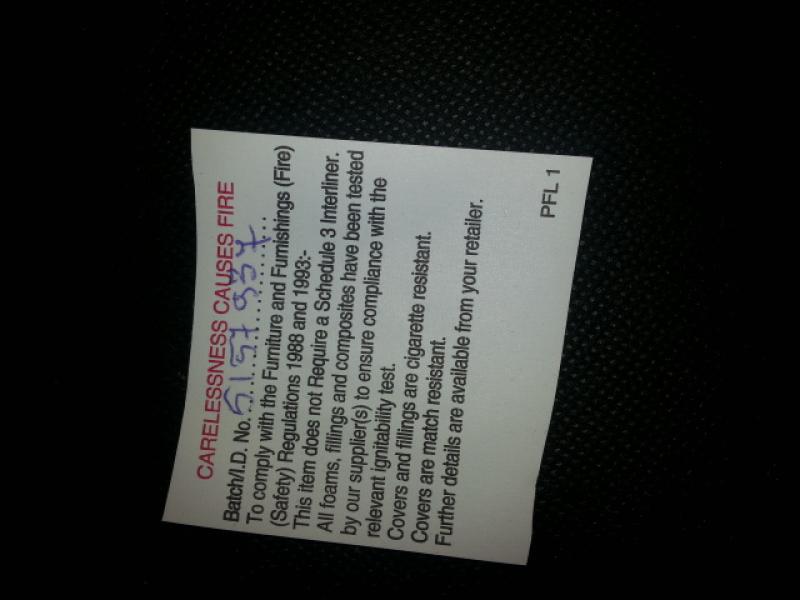 CARELESSNESS CAUSES FIRE
Batch/I.D. No. 5157937
To comply with the Furniture and Furnishings (Fire)
(Safety) Regulations 1988 and 1993:-
This item does not Require a Schedule 3 Interliner.
All foams, fillings and composites have been tested
by our supplier(s) to ensure compliance with the
relevant ignitability test.
Covers and fillings are cigarette resistant.
Covers are match resistant.
Further details are available from your retailer.
PFL 1